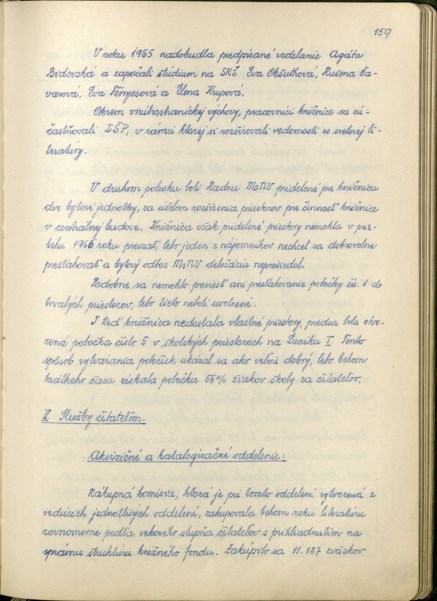 159
V roku 1965 nadobudla predpísané vzdelanie Agáta
Bidovská a započali štúdium na SKŠ Eva Okšutková, Ružena Ba-
varová, Eva Fényesová a Elena Krupová.
Okrem vnútrostraníckej výchovy, pracovníci knižnice sa zú-
častňovali IŠP, v rámci ktorej si rozširovali vedomosti zo svetovej li-
teratúry.
V druhom polroku boli Radou MsNV pridelené pre knižnicu
dve bytové jednotky, za účelom rozšírenia priestorov pre činnosť knižnice
v centrálnej budove. Knižnica však pridelené priestory nemohla v prie-
behu 1966 roku prevziať, lebo jeden z nájomníkov nechcel sa dobrovoľne
presťahovať a bytový odbor MsNV deložáciu nepreviedol.
Podobne sa nemohlo previesť ani presťahovanie pobočky čís. 1 do
trvalých priestorov, lebo tieto neboli uvoľnené.
I keď knižnica nedostala vlastné priestory, predsa bola otvo-
rená pobočka číslo 5 v školských priestoroch na Luníku I. Tento
spôsob vytvárania pobočiek ukázal sa ako veľmi dobrý, lebo behom
krátkeho času získala pobočka 56% žiakov školy za čitateľov.
Služby čitateľom.
Akvizičné a katalogizačné oddelenie:
Nákupná komisia, ktorá je pri tomto oddelení vytvorená z
vedúcich jednotlivých oddelení, zakupovala behom roku literatúru
rovnomerne podľa vekového stupňa čitateľov s prihliadnutím na
správnu štruktúru knižného fondu. Zakúpilo sa 11.187 zväzkov